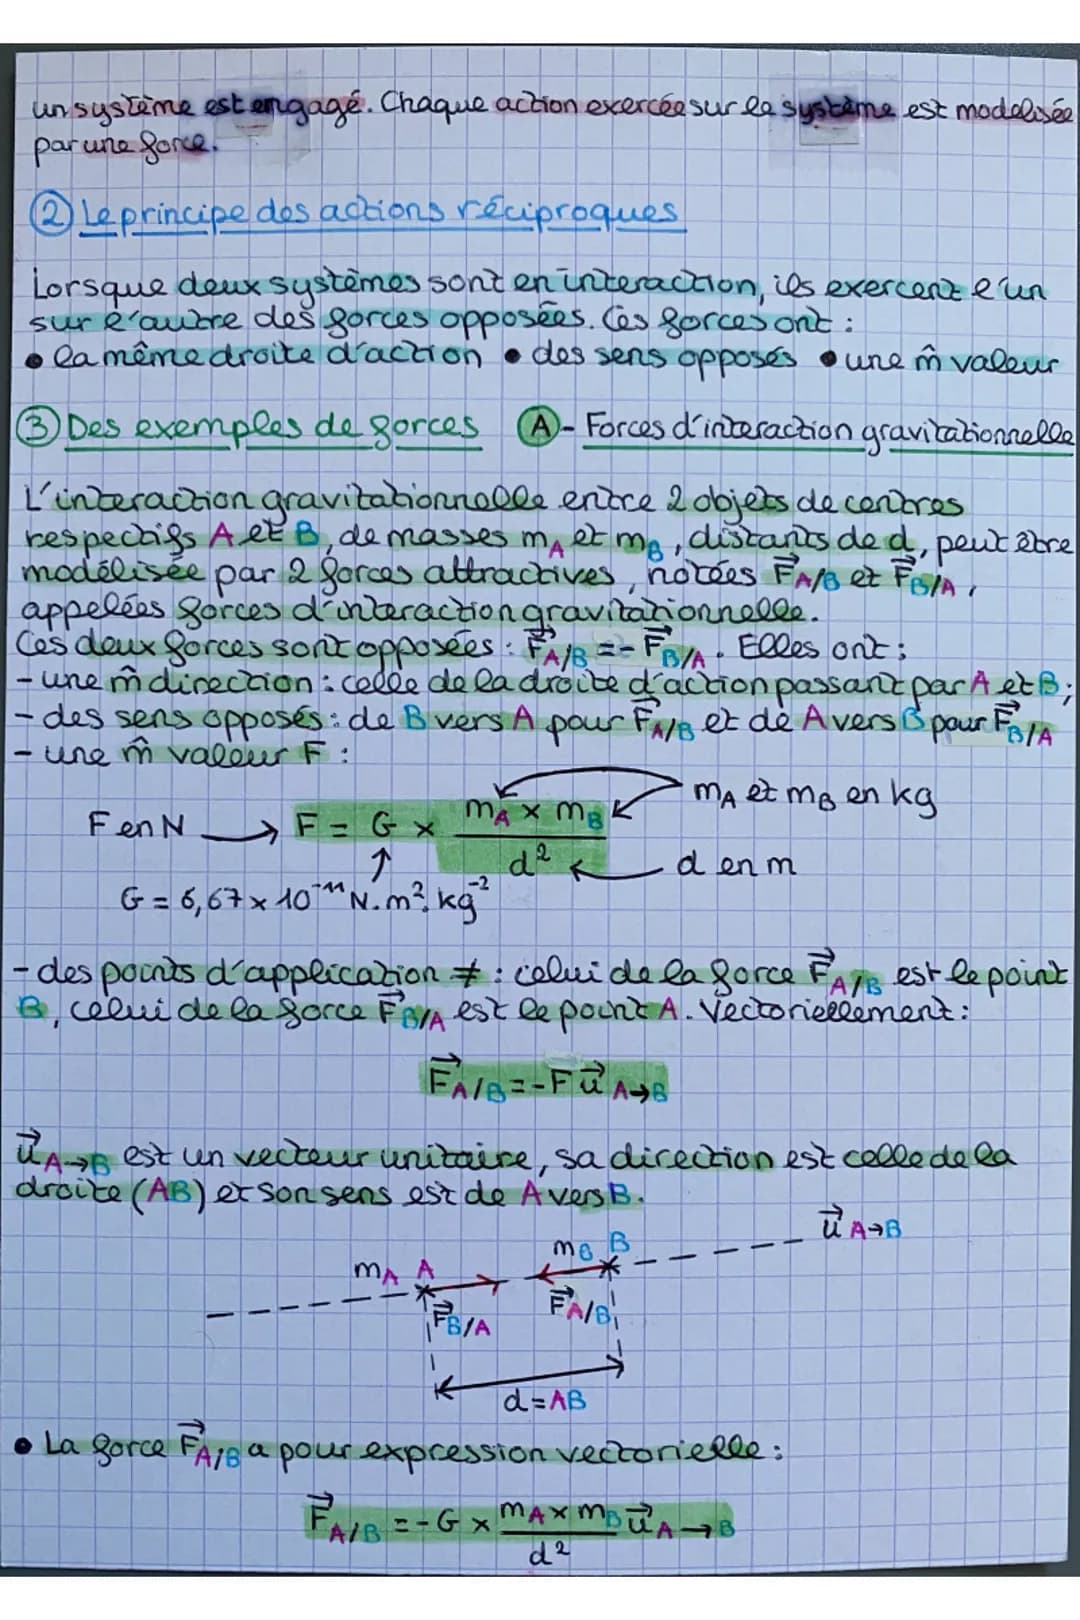 un système est engagé. Chaque action exercée sur le système est modelisée
par une force.
② Le principe des actions réciproques
Lorsque deux systèmes sont en interaction, ils exercent l'un
sur l'autre des forces opposées. Ces forces ont :
• la même droite d'action • des sens opposés • une m̂ valeur
③ Des exemples de forces Ⓐ - Forces d'interaction gravitationnelle
L'interaction gravitationnelle entre 2 objets de centres
respectifs A et B, de masses mA et mB, distants de d, peut être
modélisée par 2 forces attractives, notées F⃗A/B et F⃗B/A,
appelées forces d'interaction gravitationnelle.
Ces deux forces sont opposées : F⃗A/B = - F⃗B/A. Elles ont :
- une m̂ direction : celle de la droite d'action passant par A et B ;
- des sens opposés : de B vers A pour F⃗A/B et de A vers B pour F⃗B/A
- une m̂ valeur F :
mA et mB en kg
F en N → F = G × mA × mB / d²
d en m
G = 6,67 × 10⁻¹¹ N.m².kg⁻²
- des points d'application ≠ : celui de la force F⃗A/B est le point
B, celui de la force F⃗B/A est le point A. Vectoriellement :
F⃗A/B = - F u⃗ A→B
u⃗ A→B est un vecteur unitaire, sa direction est celle de la
droite (AB) et son sens est de A vers B.
u⃗ A→B
mB B
mA A
F⃗B/A F⃗A/B
d = AB
• La force F⃗A/B a pour expression vectorielle :
F⃗A/B = - G × mA × mB / d² u⃗ A→B